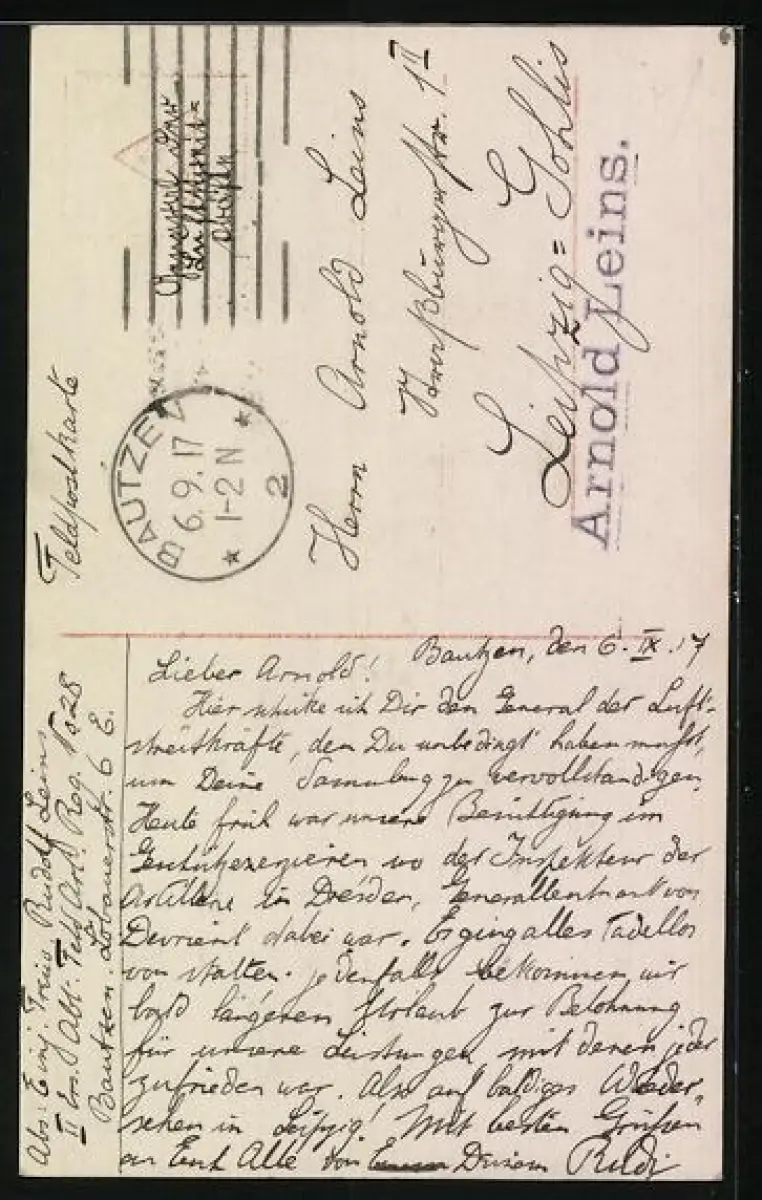 Feldpostkarte
BAUTZEN
6.9.17
1-2 N
2
General der
Luftstreit=
kräfte
Herrn Arnold Leins
Straßburgerstr. 1 II
Leipzig=Gohlis
Arnold Leins.
Abs: Einj. Rudolf Leins
II Abt. Feld Art. Reg. No 28
Bautzen. Löbauerstr. 6 E.
Bautzen, den 6. IX. 17
Lieber Arnold!
Hier schike ich Dir den General der Luft-
streitkräfte, den Du unbedingt haben mußt,
um Deine Sammlung zu vervollständigen.
Heute früh war unsere Besichtigung im
Geschützexerzieren, wo der Inspekteur der
Artillerie in Dresden, Generalleutnant von
Devrient dabei war. Es ging alles Tadellos
von statten. jedenfalls bekommen wir
bald längeren Urlaub zur Belohnung
für unsere Leistungen, mit denen jeder
zufrieden war. Also auf baldiges Wieder-
sehen in Leipzig! Mit besten Grüßen
an Euch Alle von Rudi